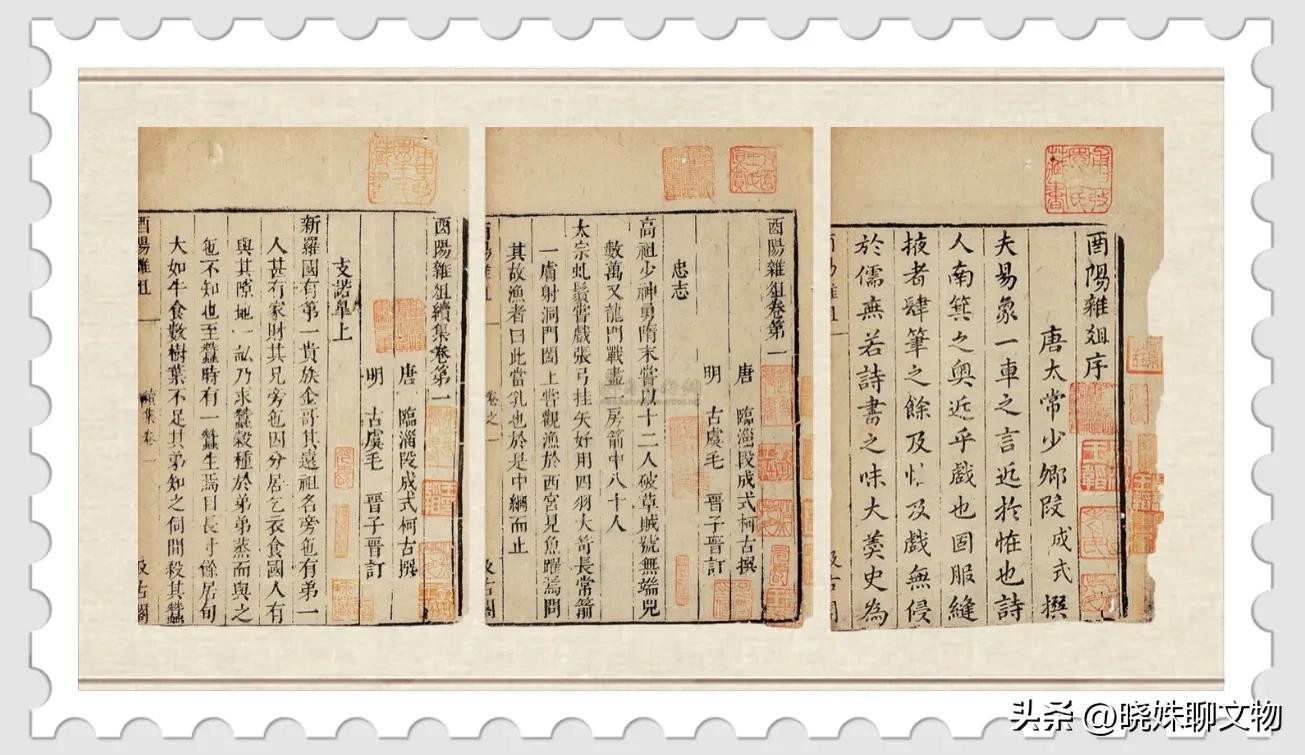 酉陽雜俎序
唐太常少卿段成式撰
夫易象一車之言近於怪也詩
人南箕之奧近乎戲也固服縫
掖者肆筆之餘及怪及戲無侵
於儒無若詩書之味大羹史為
酉陽雜俎卷第一
唐 臨淄段成式柯古撰
明 古虞毛 晉子晉訂
忠志
高祖少神勇隋末嘗以十二人破草賊號無端兒
數萬又龍門戰盡一房箭中八十人
太宗虬鬚嘗戲張弓挂矢好用四羽大笴長常箭
一膚射洞門闔上嘗觀漁於西宮見魚躍焉問
其故漁者曰此當乳也於是中網而止
卷之一
酉陽雜俎續集卷第一
唐 臨淄段成式柯古撰
明 古虞毛 晉子晉訂
支諾皋上
新羅國有第一貴族金哥其遠祖名旁㐌有弟一
人甚有家財其兄旁㐌因分居乞衣食國人有
與其隙地一畝乃求蠶穀種於弟弟蒸而與之
㐌不知也至蠶時有一蠶生焉目長寸餘居旬
大如牛食數樹葉不足其弟知之伺間殺其蠶
酉陽雜俎
續集卷一
汲古閣
头条 @晓姝聊文物